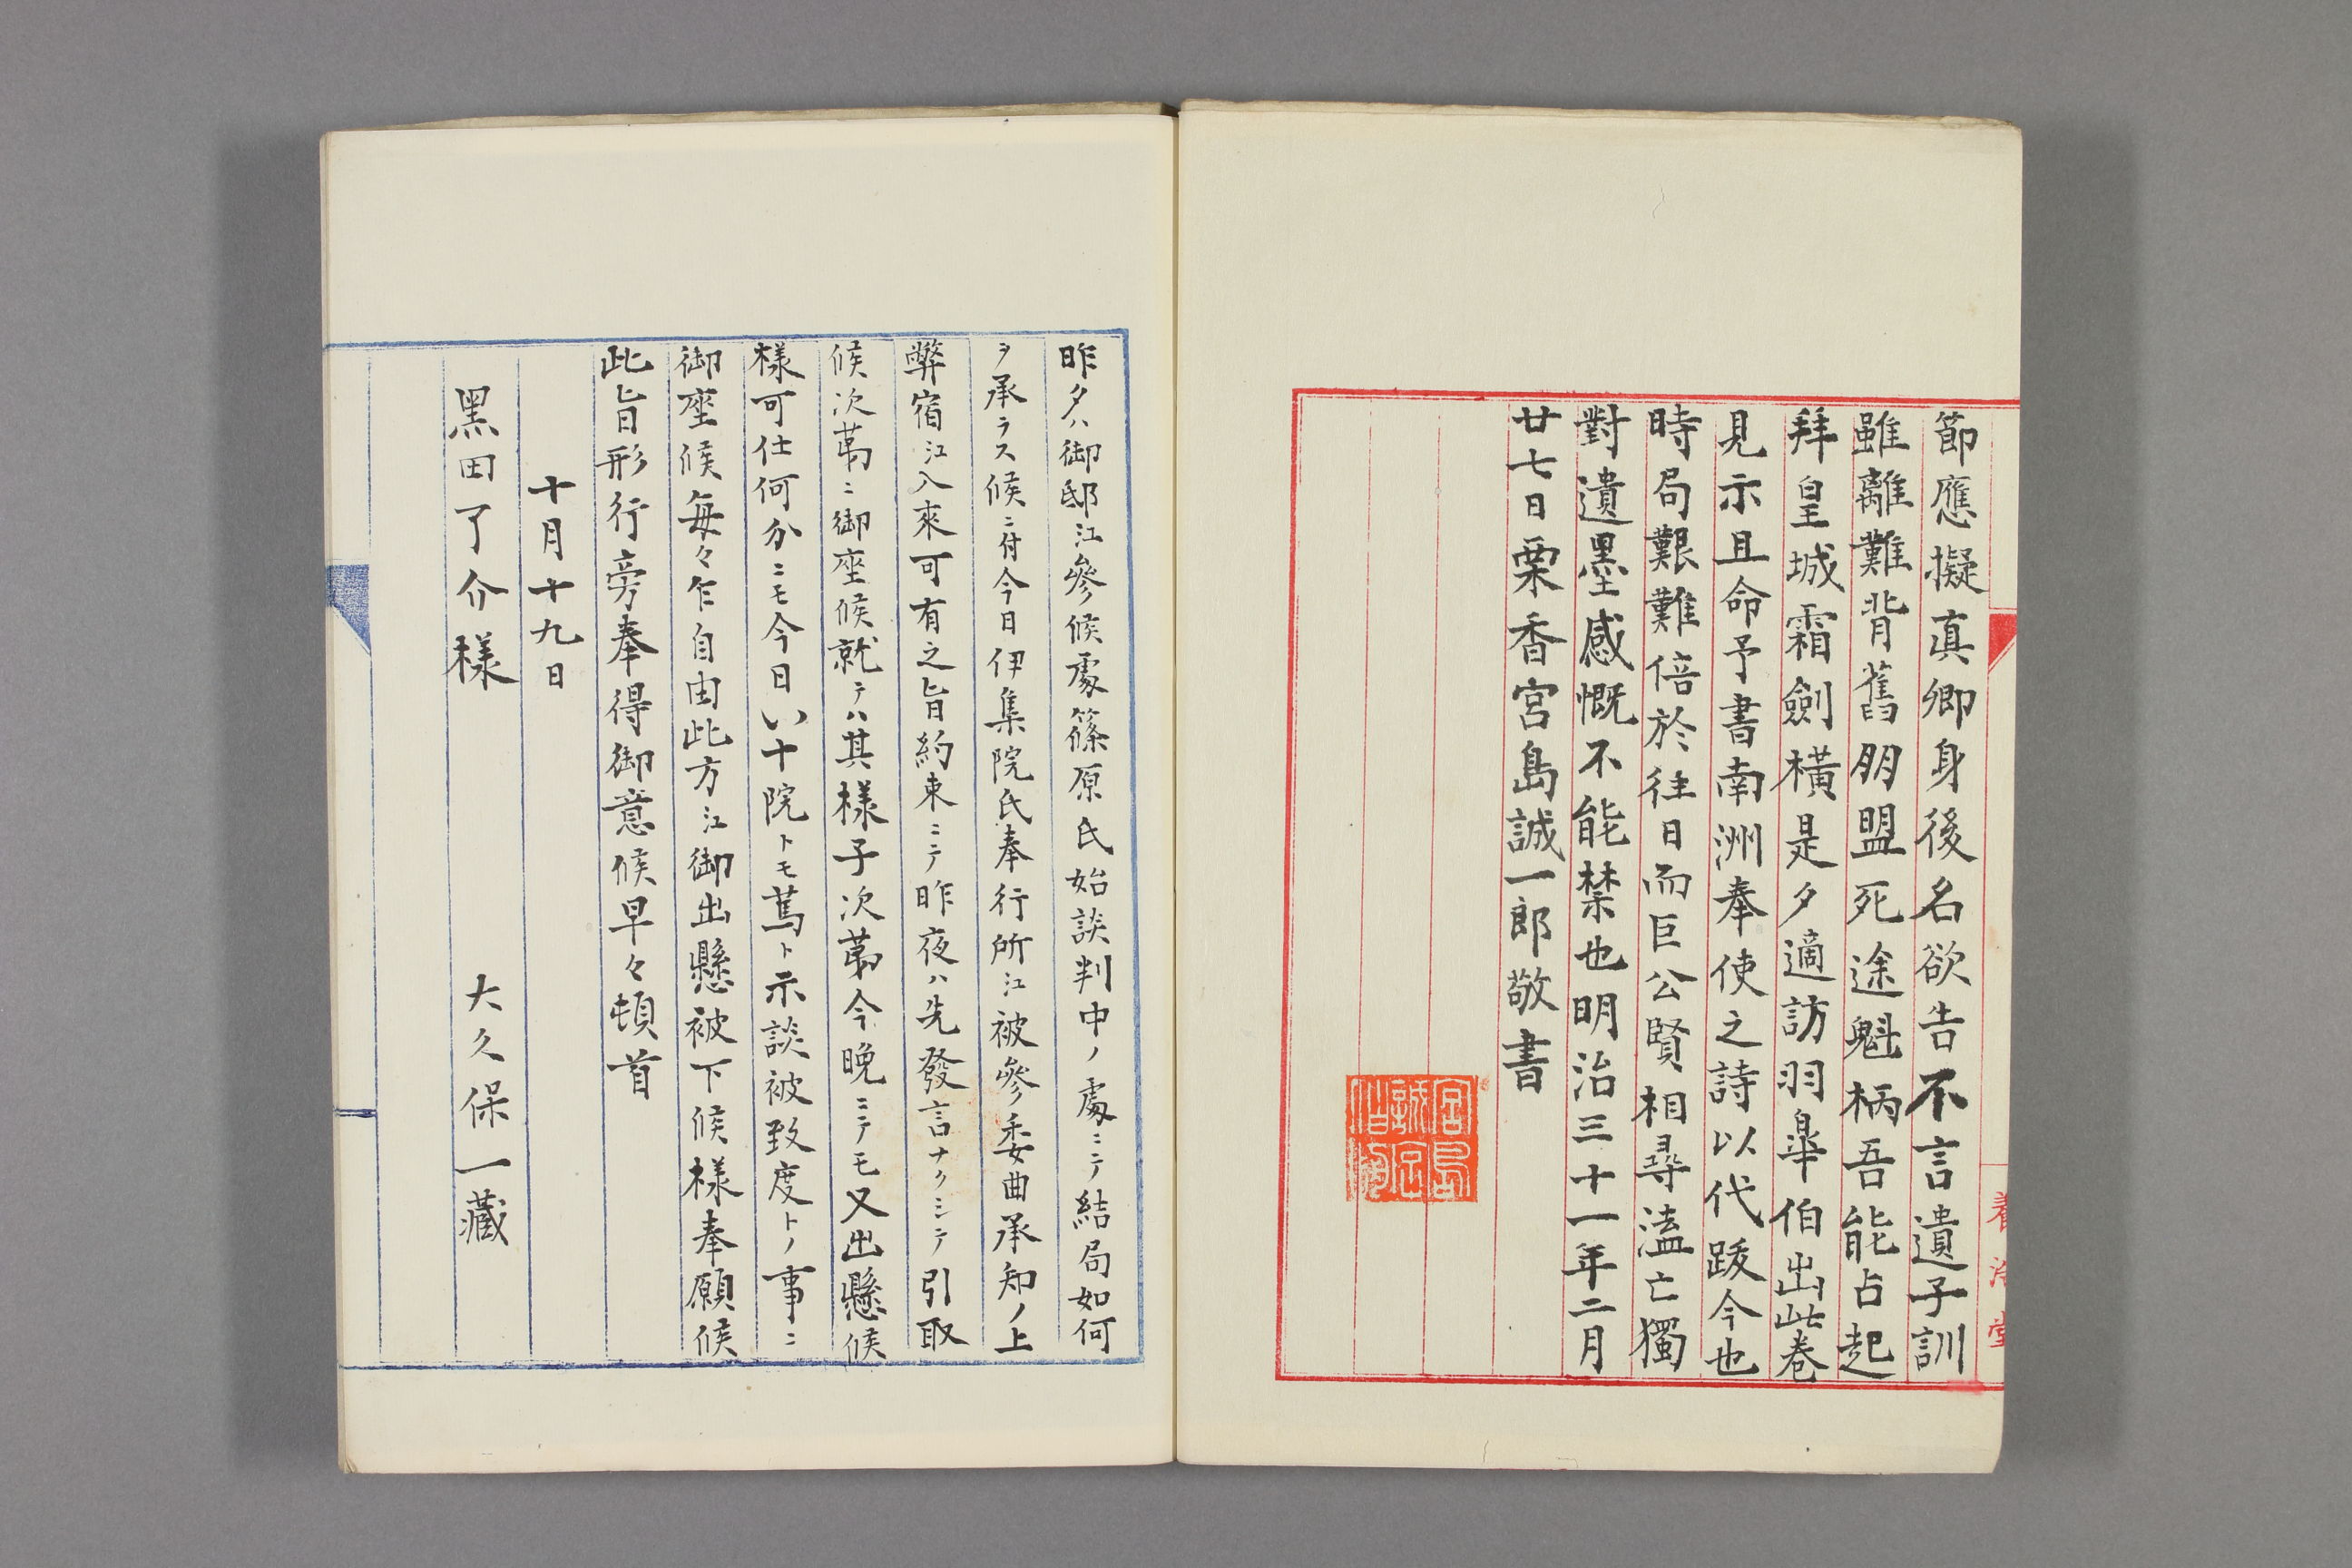 節應擬真卿身後名欲告不言遺子訓
雖離難背舊朋盟死途魁柄吾能占起
拜皇城霜劍橫是夕適訪羽皐伯出此卷
見示且命予書南洲奉使之詩以代跋今也
時局艱難倍於往日而巨公賢相尋溘亡獨
對遺墨感慨不能禁也明治三十一年二月
廿七日栗香宮島誠一郎敬書
昨夕ハ御邸江參候處篠原氏始談判中ノ處ニテ結局如何
ヲ承ラス候ニ付今日伊集院氏奉行所江被參委曲承知ノ上
弊宿江入來可有之旨約束ニテ昨夜ハ先發言ナクシテ引取
候次第ニ御座候就テハ其樣子次第今晚ニテモ又出懸候
樣可仕何分ニモ今日い十院トモ篤ト示談被致度トノ事ニ
御座候每々乍自由此方江御出懸被下候樣奉願候
此旨形行旁奉得御意候早々頓首
十月十九日
大久保一藏
黑田了介樣